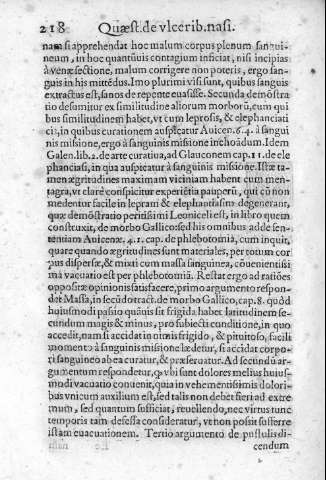 218 Quæst. de vlcerib. nasi.
nam si apprehendat hoc malum corpus plenum sangui-
neum, in hoc quantũuis contagium inficiat, nisi incipias
à venæ sectione, malum corrigere non poteris, ergo san-
guis in his mittẽdus. Imo plurimi visi sunt, quibus sanguis
extractus est, sanos de repente euasisse. Secunda demõstra
tio desumitur ex similitudine aliorum morborũ, cum qui
bus similitudinem habet, vt cum leprosis, & elephanciati
cis, in quibus curationem auspicatur Auicen. 6. 4. à sangui
nis missione, ergo à sanguinis missione inchoãdum. Idem
Galen. lib. 2. de arte curatiua, ad Glauconem cap. 11. de ele
phanciasi, in qua auspicatur à sanguinis missione. Istæ ta-
men ægritudines maximam viciniam habent cum men-
tagra, vt clarè conspicitur experiẽtia pauperũ, qui cũ non
medentur facile in lepram & elephantiasim degenerant,
quæ demõstratio peritissimi Leoniceli est, in libro quem
construxit, de morbo Gallico: sed his omnibus adde sen-
tentiam Auicenæ. 4. 1. cap. de phlebotomia, cum inquit,
quare quando ægritudines sunt materiales, per totum cor
pus dispersæ, & mixti cum massa sanguinea, cõuenientissi
ma vacuatio est per phlebotomiã. Restat ergo ad ratiões
oppositæ opinionis satisfacere, primo argumento respon
dat Massa, in secũdo tract. de morbo Gallico, cap. 8. quòd
huiusmodi passio quãuis sit frigida habet latitudinem se-
cundum magis & minus, pro subiecti conditione, in quo
accedit, nam si accidat in oĩnis frigido, & pituitoso, facili
momento à sanguinis missione lædetur, si accidat corpo-
ri sanguineo ab ea curatur, & præseruatur. Ad secundũ ar-
gumentum respondetur, q̃ vbi sunt dolores melius huius-
modi vacuatio conuenit, quia in vehementissimis dolori-
bus vnicum auxilium est, sed talis non debet fieri ad extre
mum, sed quantum sufficiat, reuellendo, nec virtus tunc
temporis tam defessa consideratur, vt non possit sufferre
istam euacuationem. Tertio argumento de pustulis di-
cendum